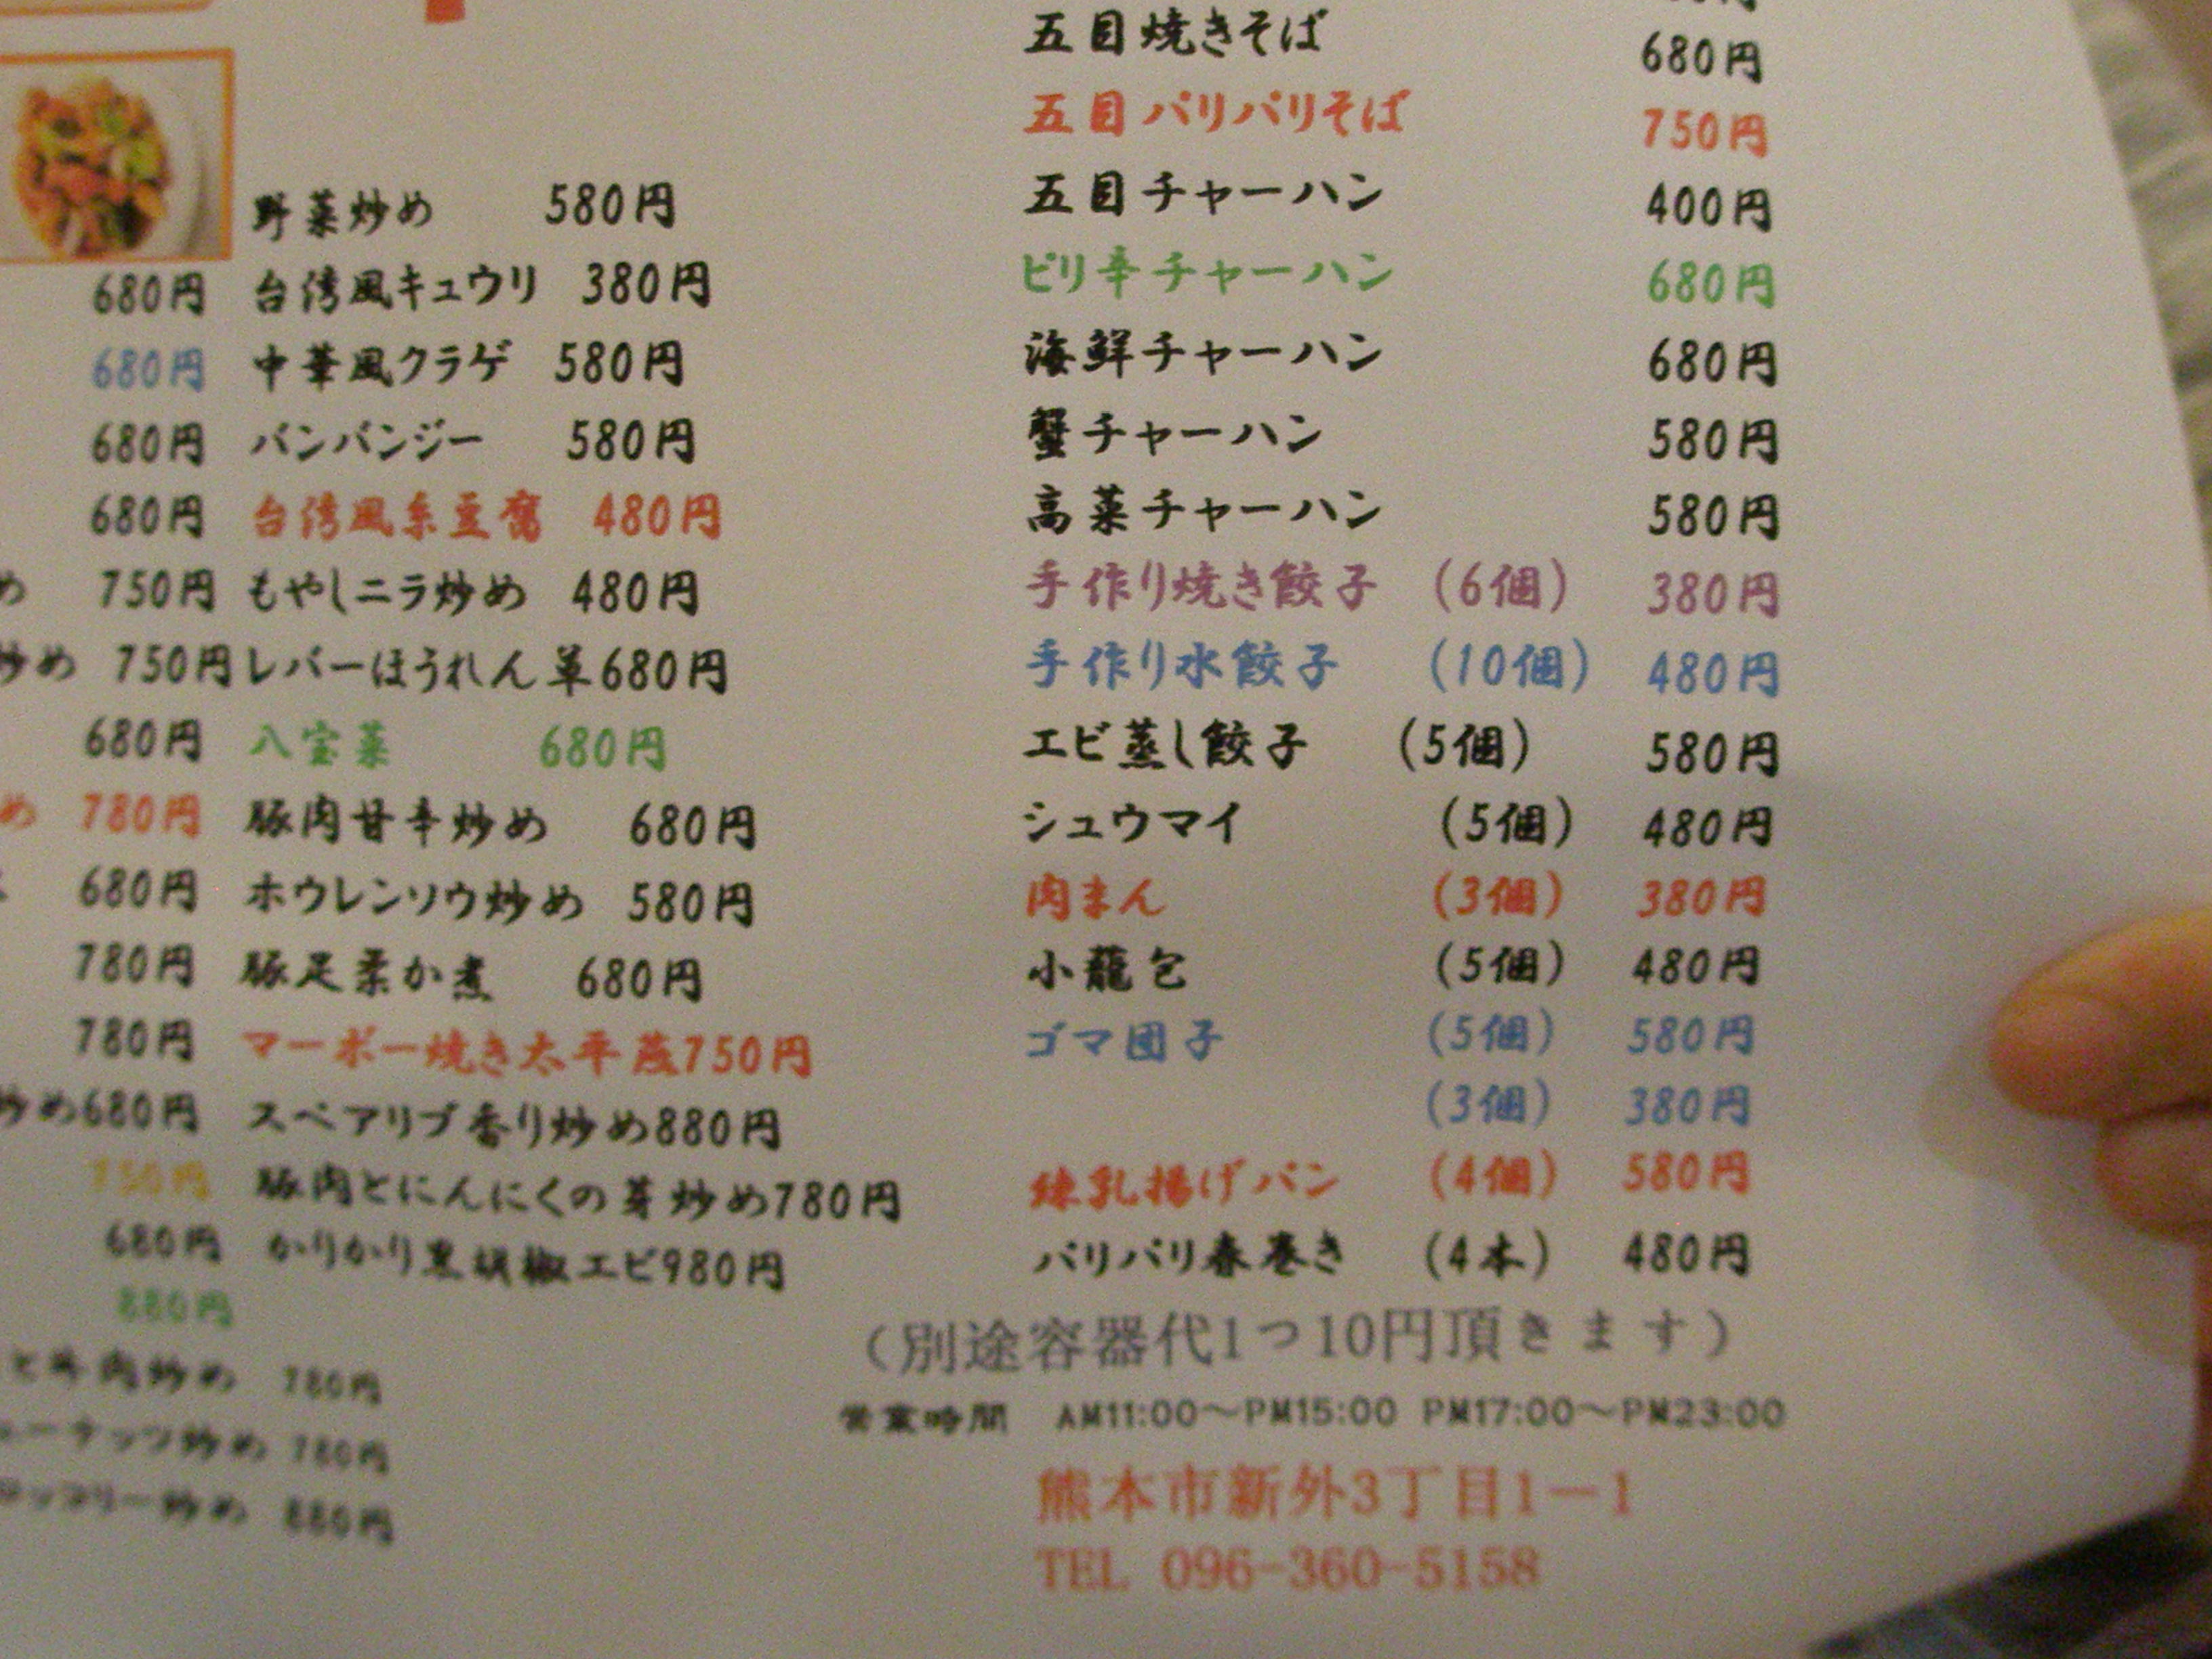 野菜炒め 580円
680円 台湾風キュウリ 380円
680円 中華風クラゲ 580円
680円 バンバンジー 580円
680円 台湾風糸豆腐 480円
め 750円 もやしニラ炒め 480円
炒め 750円 レバーほうれん草680円
680円 八宝菜 680円
め 780円 豚肉甘辛炒め 680円
680円 ホウレンソウ炒め 580円
780円 豚足柔か煮 680円
780円 マーボー焼き太平燕750円
炒め680円 スペアリブ香り炒め880円
750円 豚肉とにんにくの芽炒め780円
680円 かりかり黒胡椒エビ980円
880円
と牛肉炒め 780円
ューナッツ炒め 780円
ロッコリー炒め 880円
五目焼きそば 680円
五目パリパリそば 750円
五目チャーハン 400円
ピリ辛チャーハン 680円
海鮮チャーハン 680円
蟹チャーハン 580円
高菜チャーハン 580円
手作り焼き餃子 (6個) 380円
手作り水餃子 (10個) 480円
エビ蒸し餃子 (5個) 580円
シュウマイ (5個) 480円
肉まん (3個) 380円
小籠包 (5個) 480円
ゴマ団子 (5個) 580円
(3個) 380円
練乳揚げパン (4個) 580円
パリパリ春巻き (4本) 480円
(別途容器代1つ10円頂きます)
営業時間 AM11:00～PM15:00 PM17:00～PM23:00
熊本市新外3丁目1－1
TEL 096-360-5158